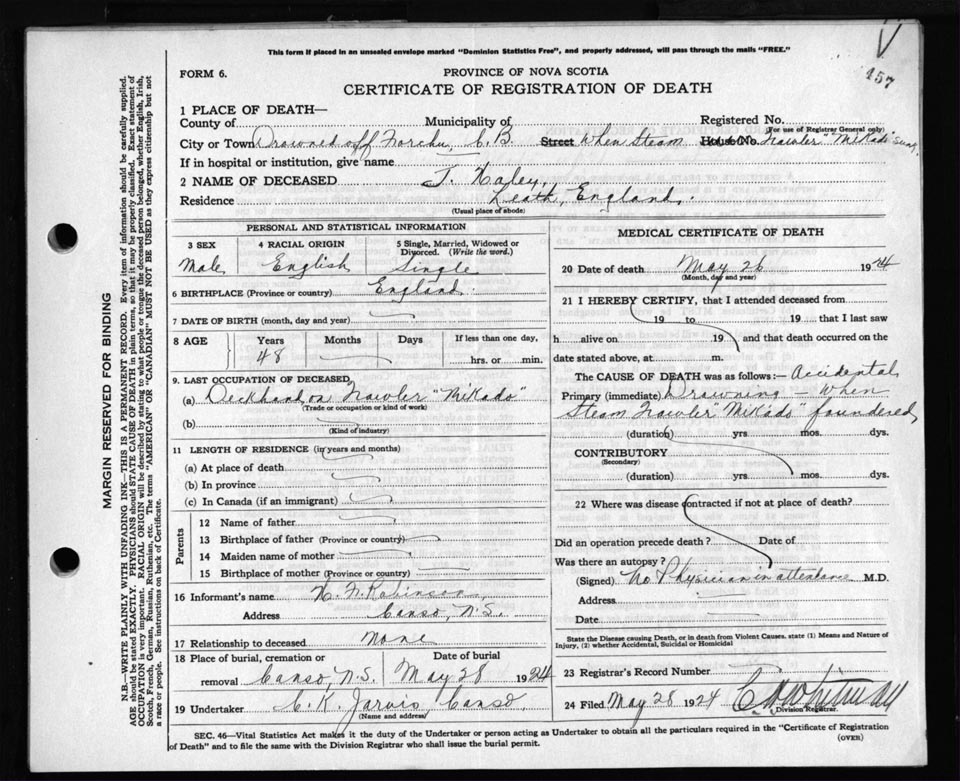 This form if placed in an unsealed envelope marked "Dominion Statistics Free", and properly addressed, will pass through the mails "FREE."
157
FORM 6.
PROVINCE OF NOVA SCOTIA
CERTIFICATE OF REGISTRATION OF DEATH
1 PLACE OF DEATH—
County of Municipality of Registered No.
(For use of Registrar General only)
City or Town Drowned off Forchu, C.B. Street When Steam House No. Trawler "Mikado" sunk
If in hospital or institution, give name
2 NAME OF DECEASED J. Haley,
Residence Leath, England.
(Usual place of abode)
PERSONAL AND STATISTICAL INFORMATION
3 SEX 4 RACIAL ORIGIN 5 Single, Married, Widowed or Divorced. (Write the word.)
Male English Single
6 BIRTHPLACE (Province or country) England.
7 DATE OF BIRTH (month, day and year)
8 AGE Years Months Days If less than one day,
48 hrs. or min.
9. LAST OCCUPATION OF DECEASED
(a) Deckhand on Trawler "Mikado"
(Trade or occupation or kind of work)
(b)
(Kind of industry)
11 LENGTH OF RESIDENCE (in years and months)
(a) At place of death
(b) In province
(c) In Canada (if an immigrant)
Parents
12 Name of father
13 Birthplace of father (Province or country)
14 Maiden name of mother
15 Birthplace of mother (Province or country)
16 Informant's name Robinson
Address Canso, N.S.
17 Relationship to deceased None
18 Place of burial, cremation or removal Date of burial
Canso, N.S. May 28 1924
19 Undertaker C. K. Jarvis, Canso
(Name and address)
MEDICAL CERTIFICATE OF DEATH
20 Date of death May 26 1924
(Month, day and year)
21 I HEREBY CERTIFY, that I attended deceased from
19 to 19 that I last saw
h alive on 19 and that death occurred on the
date stated above, at m.
The CAUSE OF DEATH was as follows:— Accidental
Primary (immediate) Drowning — when
Steam Trawler "Mikado" foundered
(duration) yrs. mos. dys.
CONTRIBUTORY
(Secondary)
(duration) yrs. mos. dys.
22 Where was disease contracted if not at place of death?
Did an operation precede death? Date of
Was there an autopsy?
(Signed) No Physician in attendance M.D.
Address
Date
State the Disease causing Death, or in death from Violent Causes, state (1) Means and Nature of Injury, (2) whether Accidental, Suicidal or Homicidal
23 Registrar's Record Number
24 Filed May 28 1924 Whitman
Division Registrar.
SEC. 46—Vital Statistics Act makes it the duty of the Undertaker or person acting as Undertaker to obtain all the particulars required in the "Certificate of Registration
of Death" and to file the same with the Division Registrar who shall issue the burial permit.
(OVER)
MARGIN RESERVED FOR BINDING
N.B.—WRITE PLAINLY WITH UNFADING INK—THIS IS A PERMANENT RECORD. Every item of information should be carefully supplied.
AGE should be stated EXACTLY. PHYSICIANS should STATE CAUSE OF DEATH in plain terms, so that it may be properly classified. Exact statement of
OCCUPATION is very important. RACIAL ORIGIN will be described by stating to what people or tongue the deceased person belonged, whether English, Irish,
Scotch, French, German, Russian, Ruthenian, etc. The terms "AMERICAN" OR "CANADIAN" MUST NOT BE USED as they express citizenship but not
a race or people. See instructions on back of Certificate.